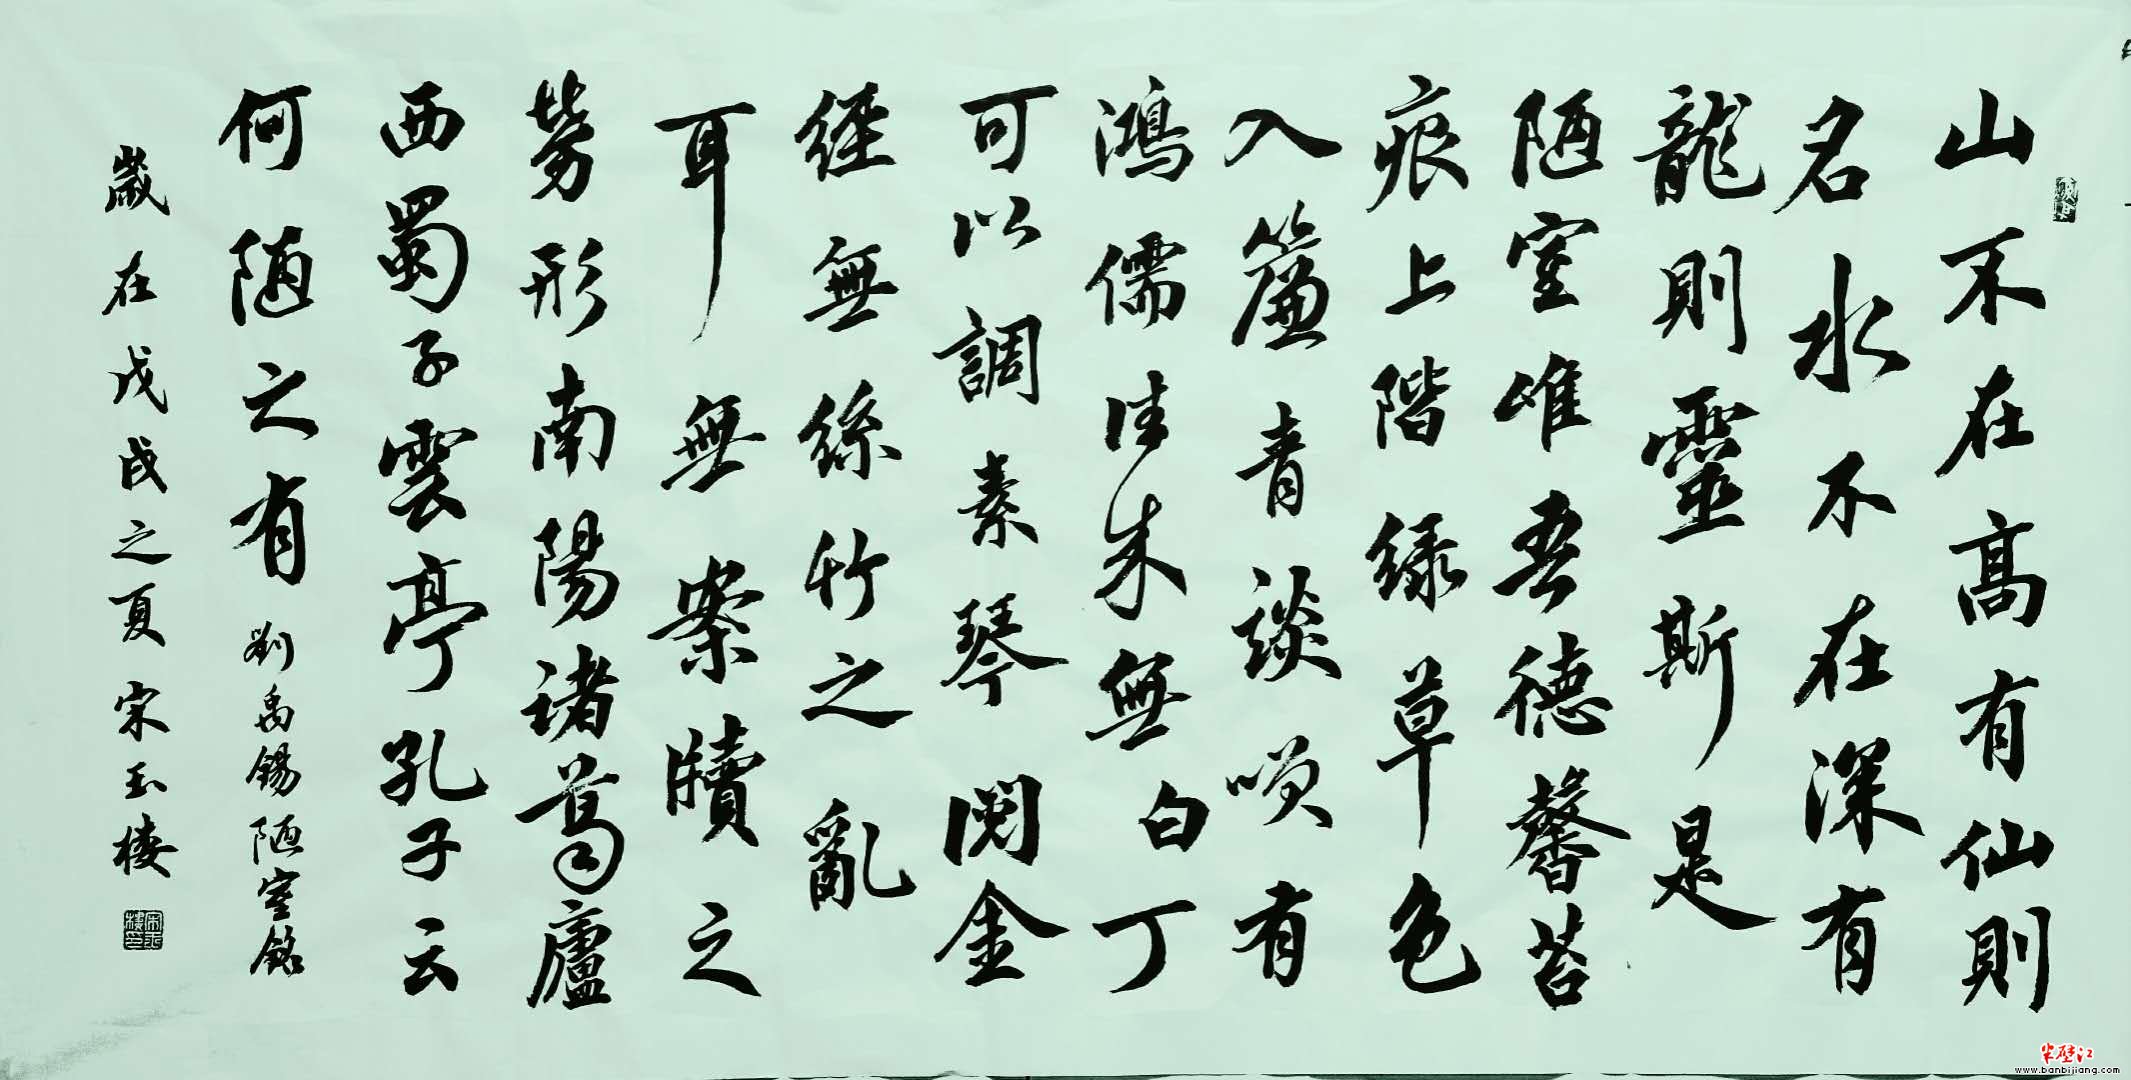 山不在髙有仙則
名水不在深有
龍則靈斯是
陋室唯吾德馨苔
痕上階綠草色
入簾青談咲有
鴻儒往来無白丁
可以調素琴閱金
經無絲竹之亂
耳無案牘之
勞形南陽諸葛廬
西蜀子雲亭孔子云
何陋之有 劉禹錫陋室銘
歲在戊戌之夏宋玉棲
宋玉棲印
半壁江
www.banbijiang.com